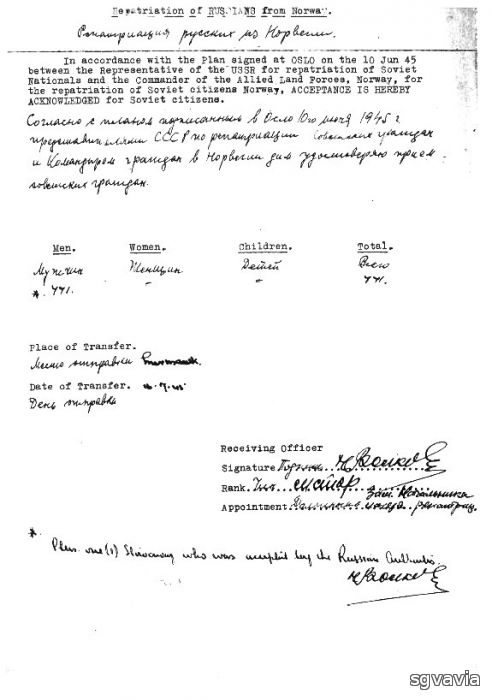 Repatriation of RUSSIANS from Norway.
Репатриация русских из Норвегии.
In accordance with the Plan signed at OSLO on the 10 Jun 45
between the Representative of the USSR for repatriation of Soviet
Nationals and the Commander of the Allied Land Forces, Norway, for
the repatriation of Soviet citizens Norway, ACCEPTANCE IS HEREBY
ACKNOWLEDGED for Soviet citizens.
Согласно с планом подписанным в Осло 10го июня 1945 г
СССР по репатриации Советских граждан
и Командиром граждан в Норвегии удостоверяю прием
советских граждан.
Men. Women. Children. Total.
Мужчин Женщин Детей Всего
*. 771. " " 771.
Place of Transfer.
Место отправки
Date of Transfer. 7.45
День отправки
Receiving Officer
Signature
Rank. майор Зам Начальника
Appointment
*.
Plus one(1) who was accepted by the Russian Authorities
sgvavia